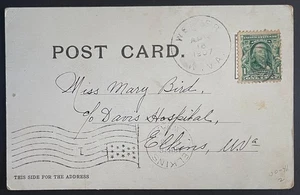 POST CARD.
Miss Mary Bird,
c/o Davis Hospital,
Elkins, W.Va
THIS SIDE FOR THE ADDRESS